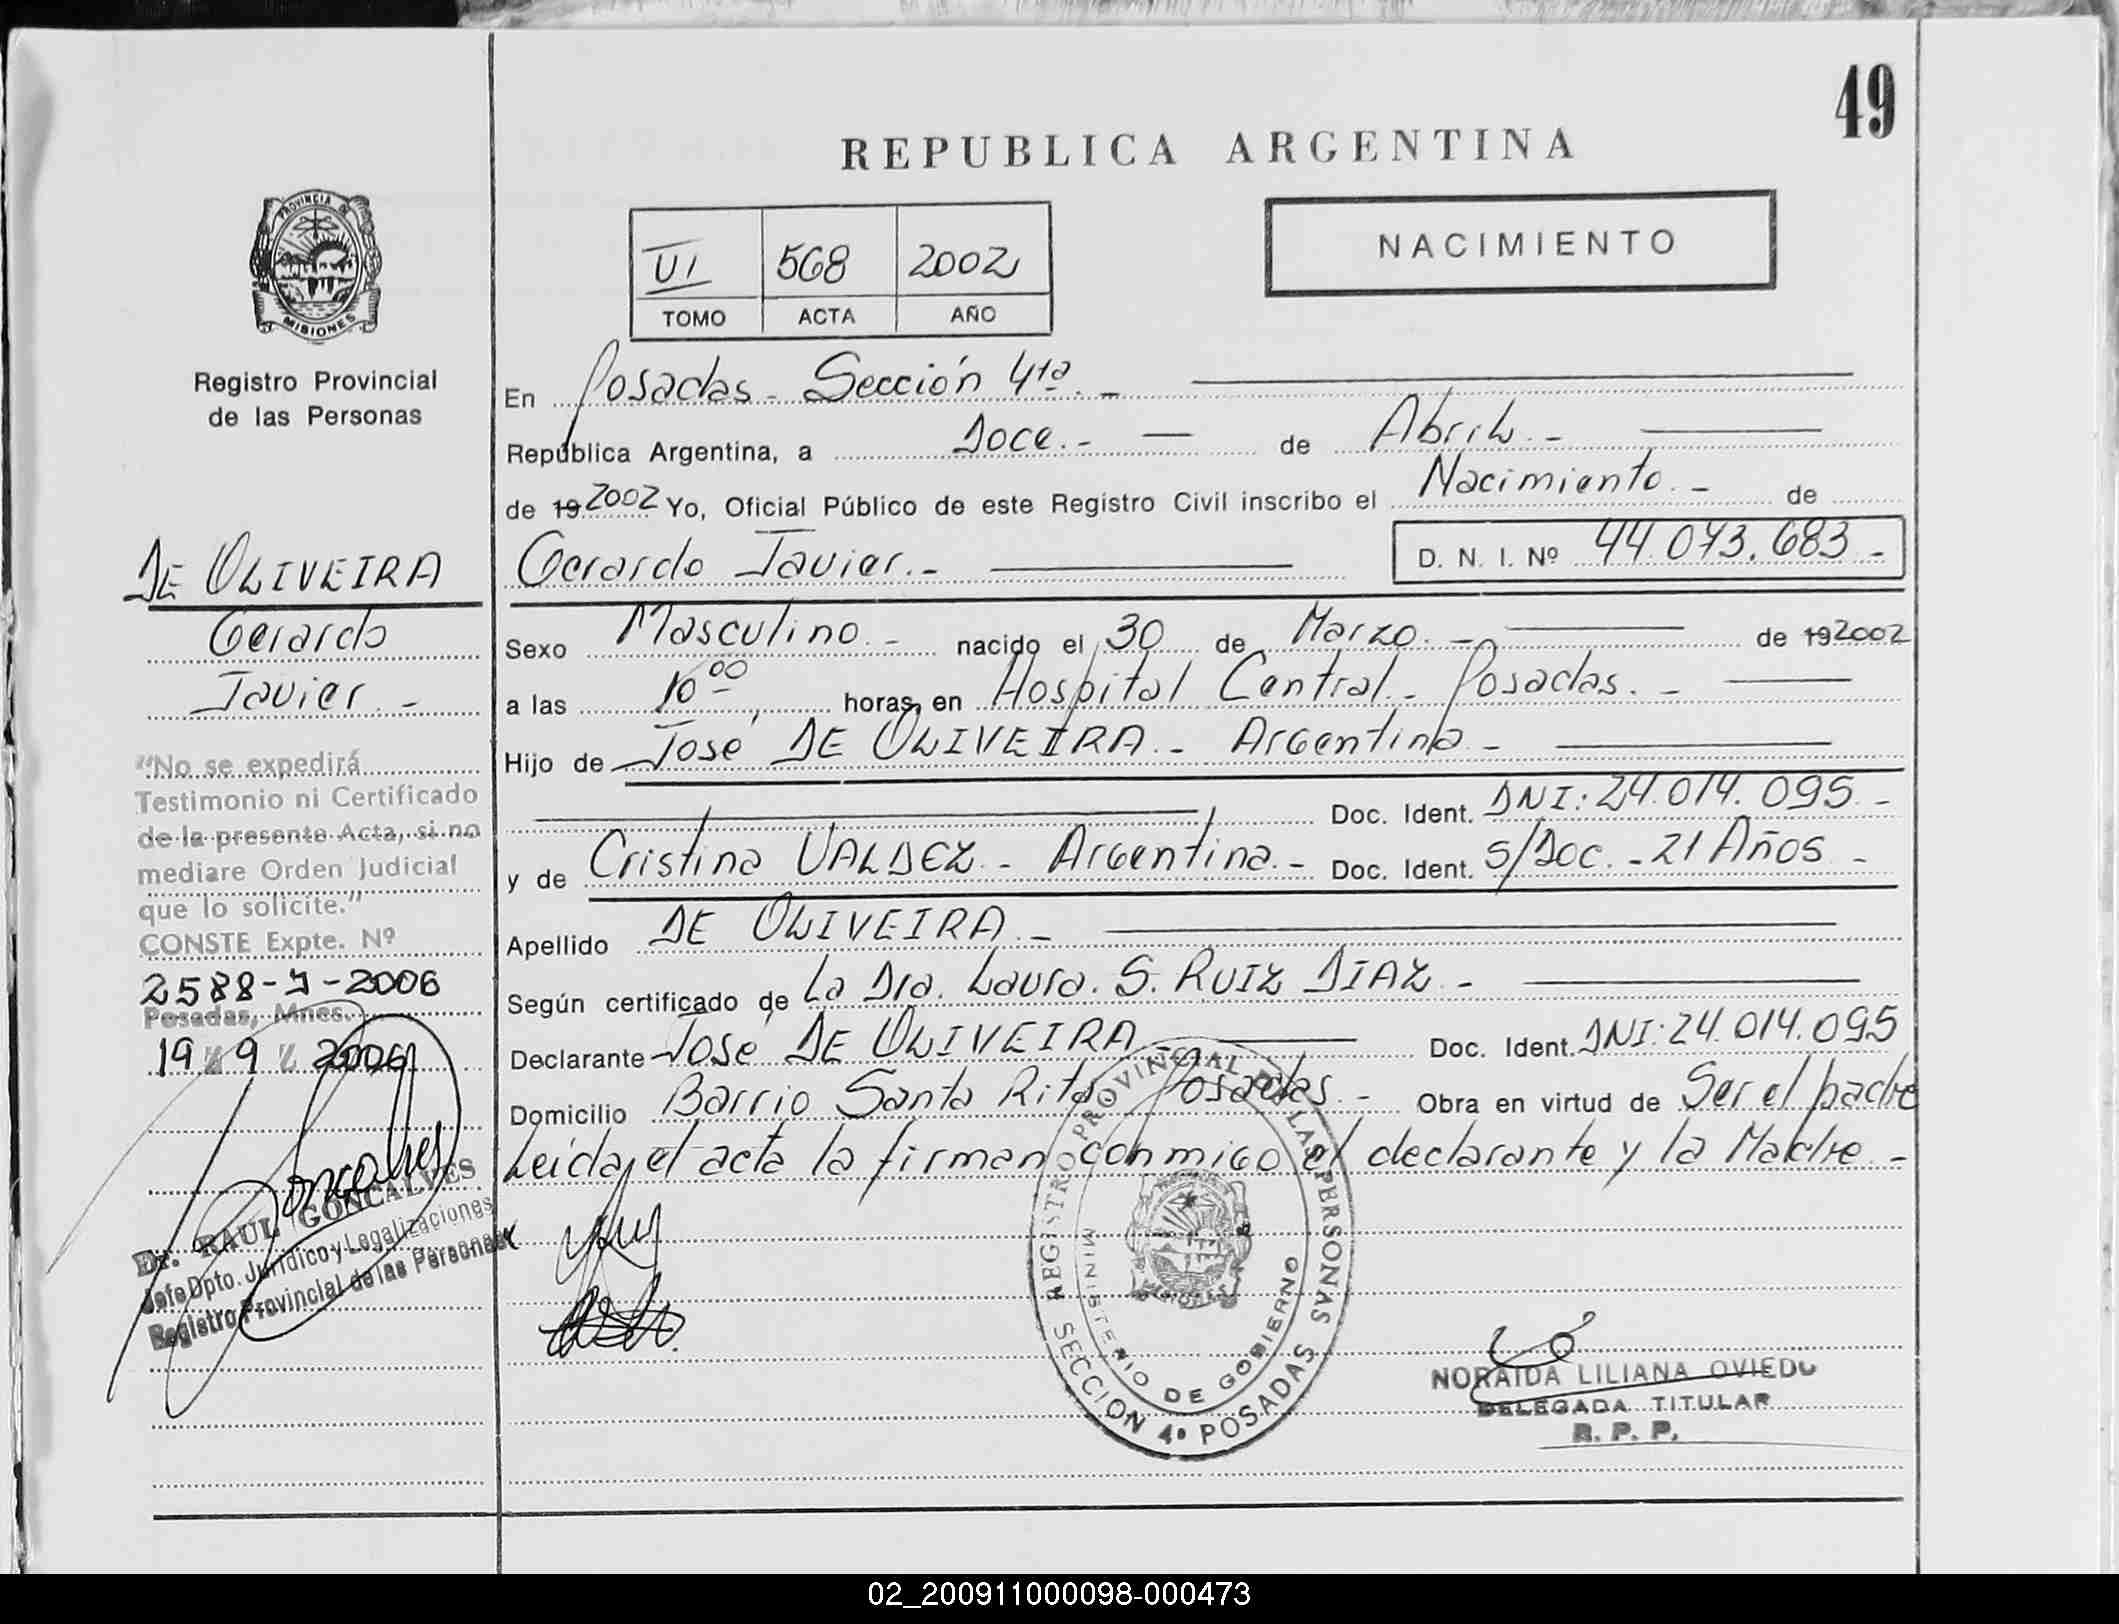 49
REPUBLICA ARGENTINA
PROVINCIA DE
MISIONES
Registro Provincial
de las Personas
VI 568 2002
TOMO ACTA AÑO
NACIMIENTO
En Posadas - Sección 4ta. -
República Argentina, a Doce. - de Abril. -
de 19 2002 Yo, Oficial Público de este Registro Civil inscribo el Nacimiento. - de
Gerardo Javier. - D. N. I. Nº 44.073.683 -
DE OLIVEIRA
Gerardo
Javier. -
Sexo Masculino. - nacido el 30 de Marzo. - de 19 2002
a las 10 00 horas, en Hospital Central - Posadas. -
Hijo de José DE OLIVEIRA. - Argentina -
Doc. Ident. DNI: 24.014.095 -
y de Cristina VALDEZ. - Argentina. - Doc. Ident. S/Doc. - 21 Años -
Apellido DE OLIVEIRA. -
Según certificado de La Dra. Laura. S. RUIZ DIAZ -
Declarante José DE OLIVEIRA Doc. Ident. DNI: 24.014.095
Domicilio Barrio Santa Rita - Posadas. - Obra en virtud de Ser el padre
Leída el acta la firman conmigo el declarante y la Madre -
"No se expedirá
Testimonio ni Certificado
de la presente Acta, si no
mediare Orden Judicial
que lo solicite."
CONSTE Expte. Nº
2588-J-2006
Posadas, Mnes.
19 9 2006
Goncalves
Dr. RAUL GONCALVES
Jefe Dpto. Jurídico y Legalizaciones
Registro Provincial de las Personas
REGISTRO PROVINCIAL DE LAS PERSONAS
MINISTERIO DE GOBIERNO
MISIONES
SECCION 4ª POSADAS
NORAIDA LILIANA OVIEDO
DELEGADA TITULAR
R. P. P.
02_200911000098-000473